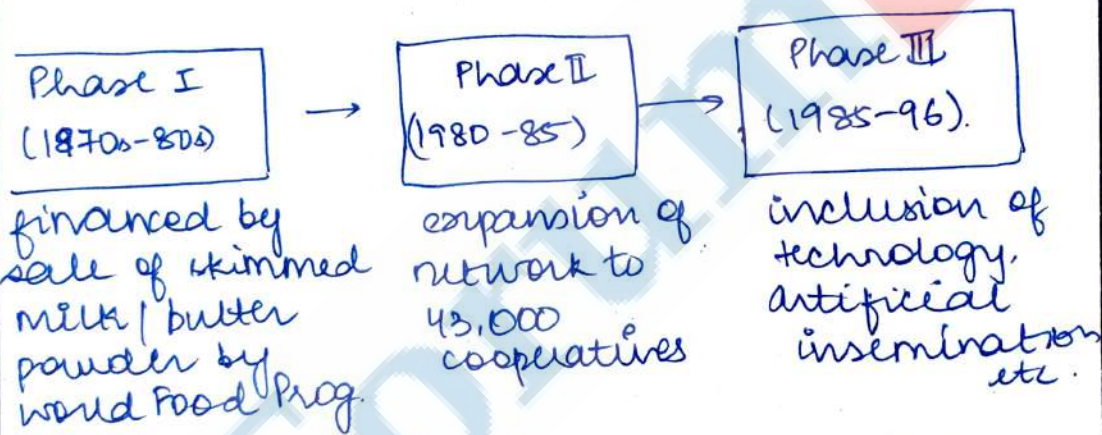 Phase I
(1970s-80s)
→
Phase II
(1980-85)
→
Phase III
(1985-96).
financed by
sale of skimmed
milk / butter
powder by
world Food Prog.
expansion of
network to
43,000
cooperatives
inclusion of
technology,
artificial
insemination
etc.